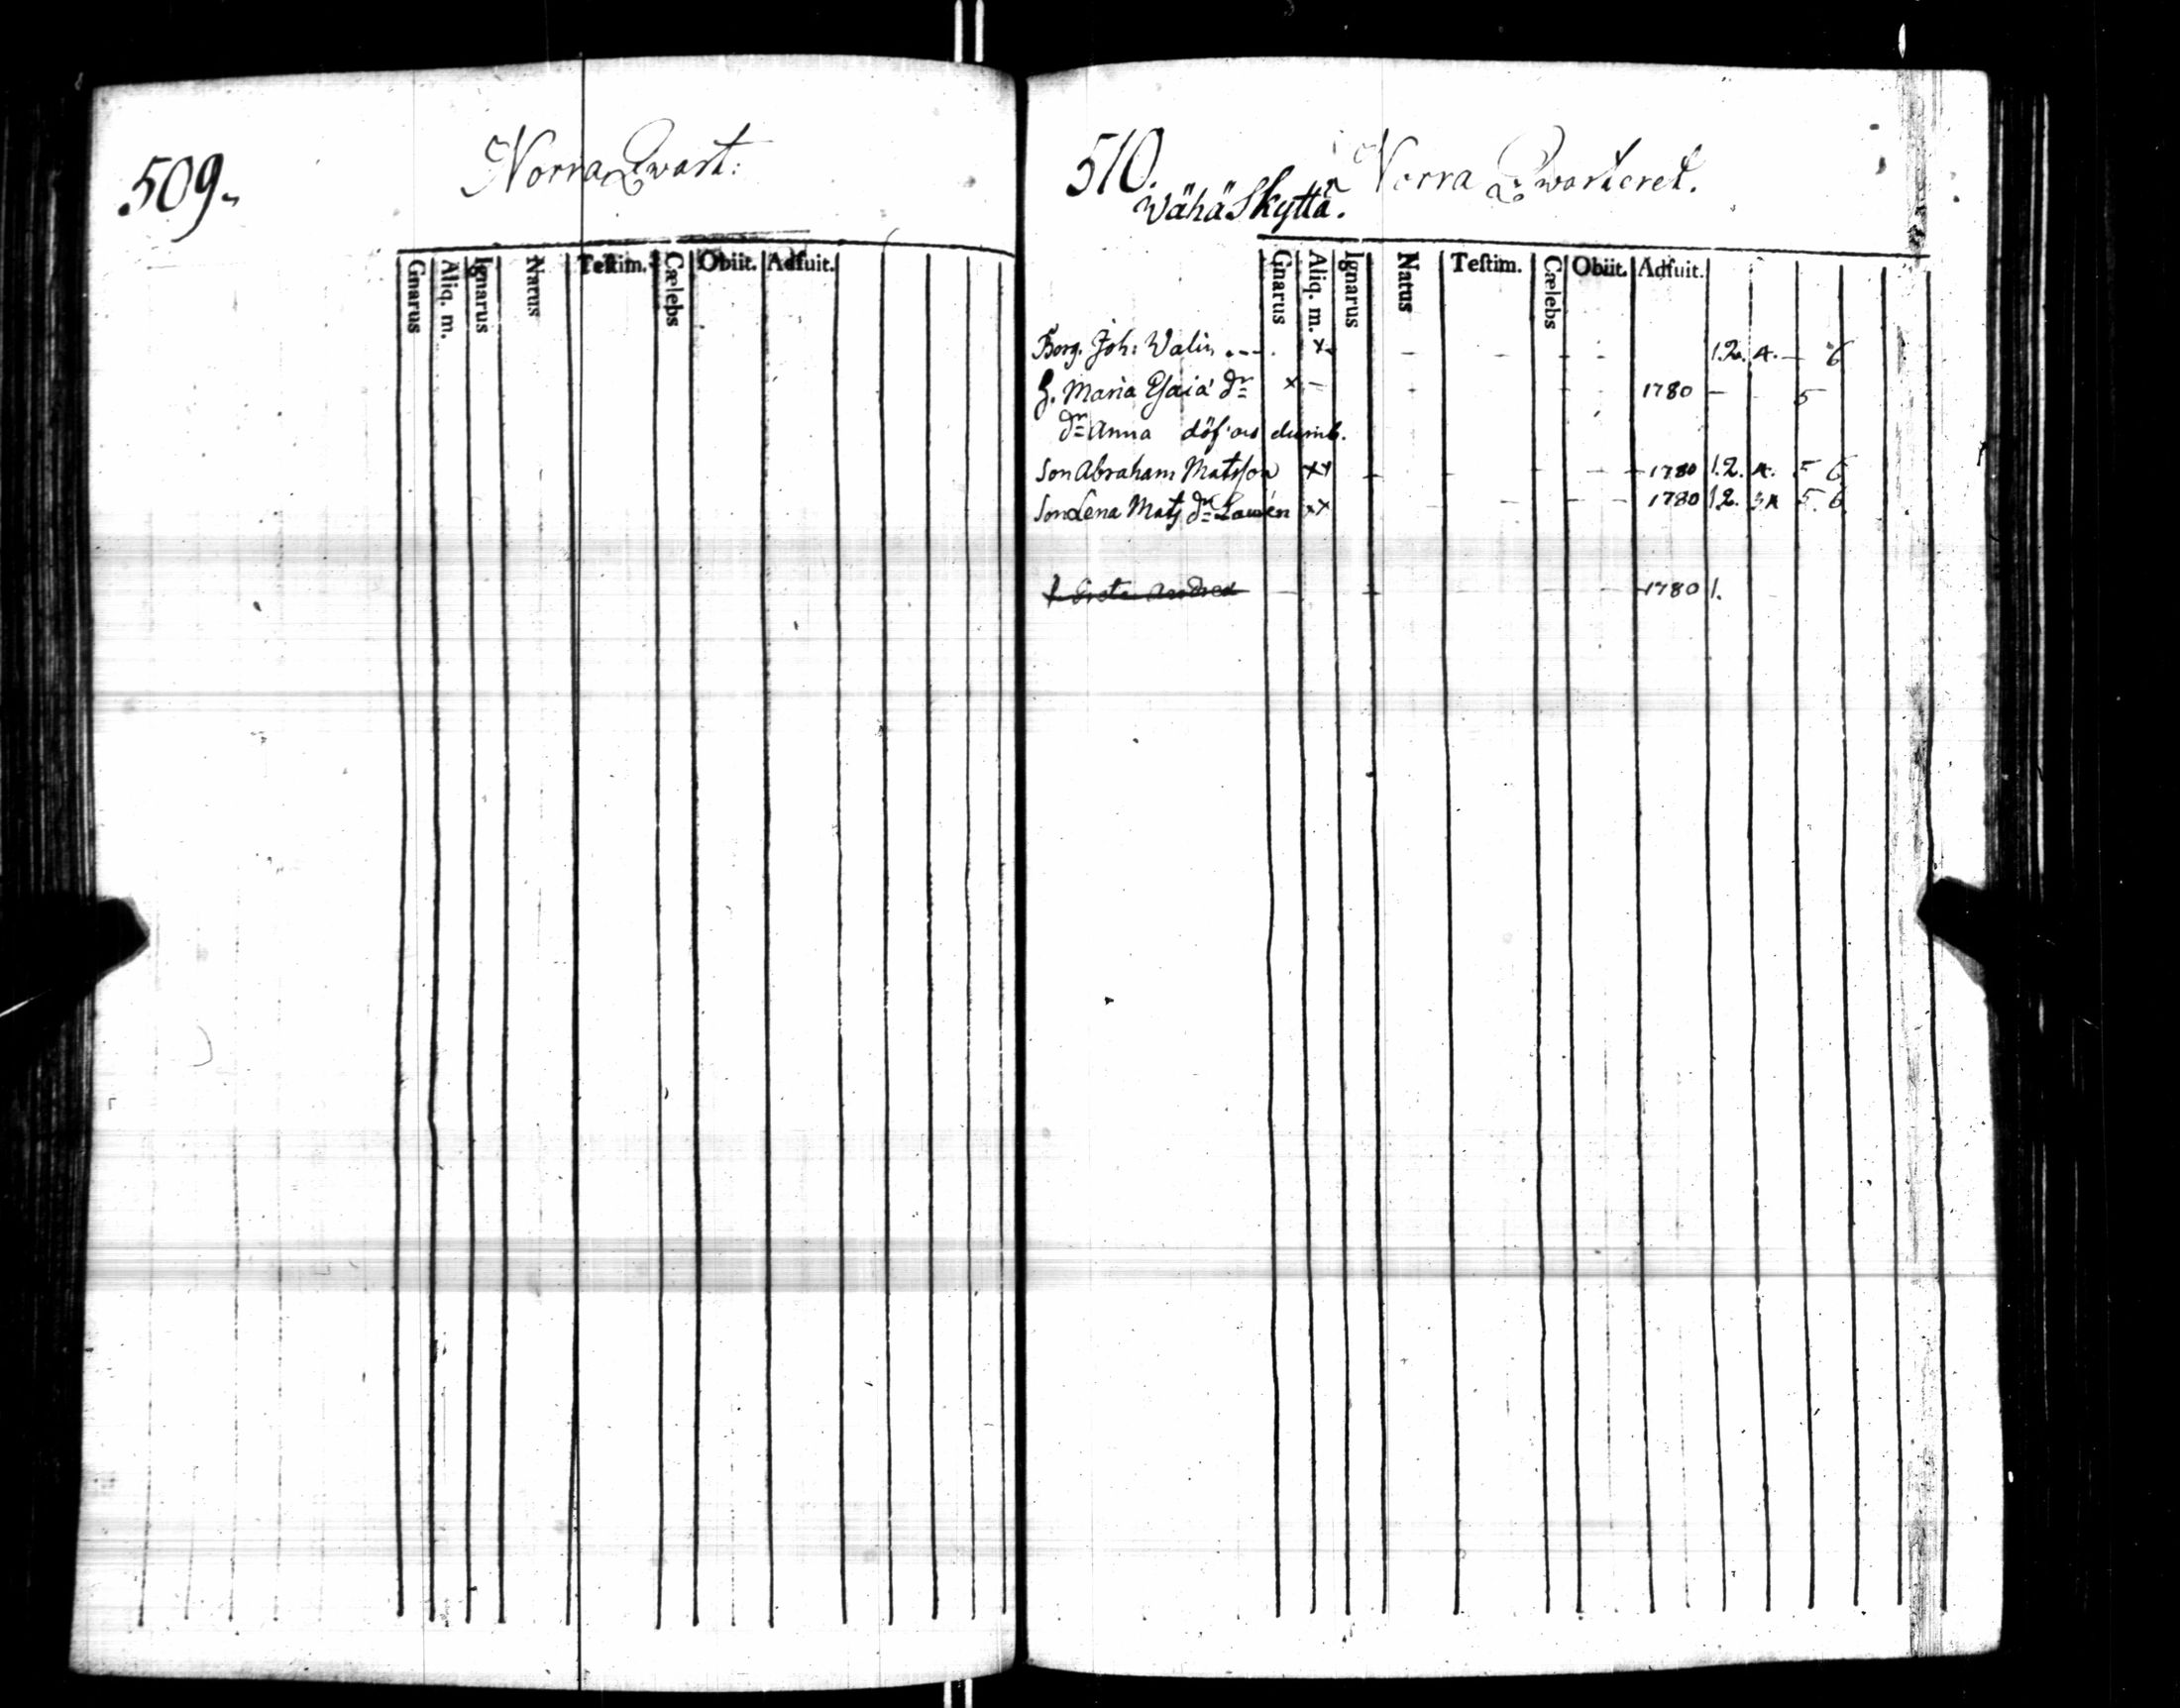 509.
Norra Qwart:
Gnarus Aliq. m. Ignarus Natus Teſtim. Cælebs Obiit. Adfuit.
510. Norra Qwarteret.
Wähä Skyttä.
Gnarus Aliq. m. Ignarus Natus Teſtim. Cælebs Obiit. Adfuit.
Borg. Joh: Walin x 1.2. 4. – 6
H. Maria Esaiæ dr x – 1780 – 5
dr Anna döf och dumb.
Son Abraham Matsson xx 1780 1.2. 4. 5 6
Son Lena Mats dr xx 1780 1.2. 34 5. 6
Greta 1780 1.